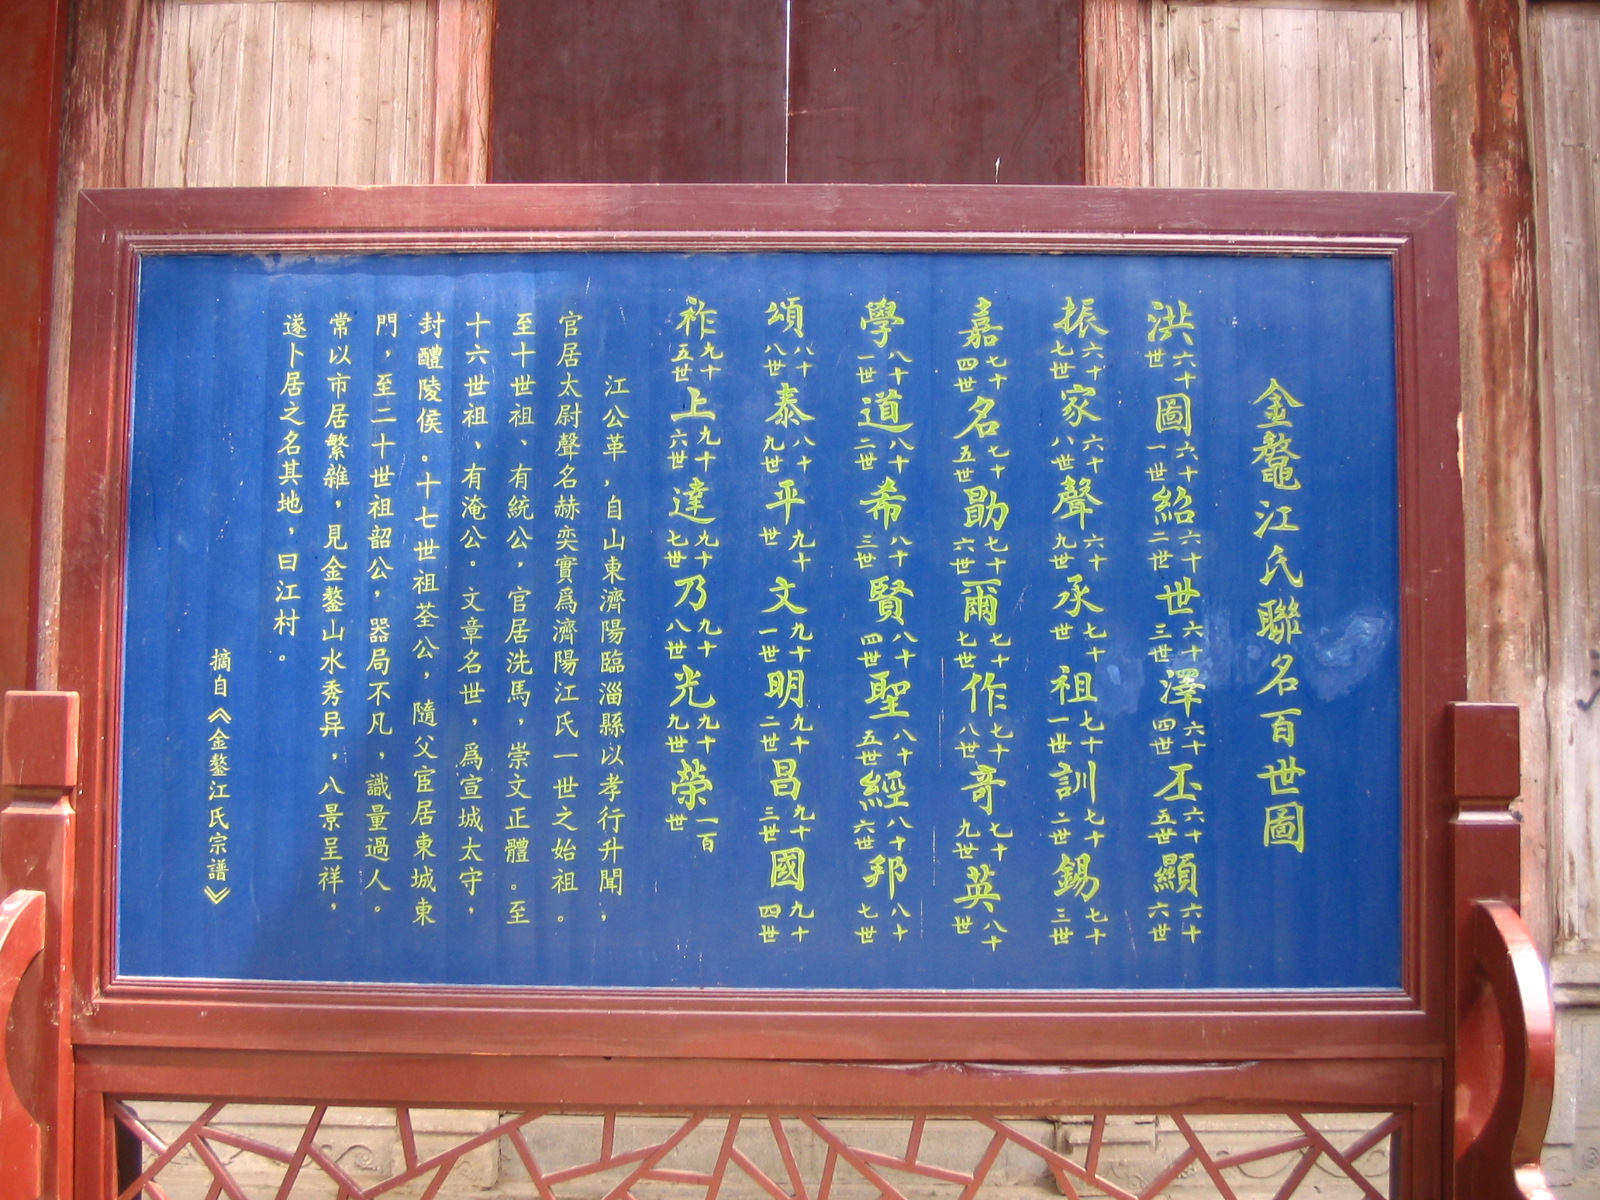 金鼇江氏聯名百世圖
洪六十世圖六十一世紹六十二世世六十三世澤六十四世丕六十五世顯六十六世
振六十七世家六十八世聲六十九世承七十世祖七十一世訓七十二世錫七十三世
嘉七十四世名七十五世勛七十六世爾七十七世作七十八世奇七十九世英八十世
學八十一世道八十二世希八十三世賢八十四世聖八十五世經八十六世邦八十七世
頌八十八世泰八十九世平九十世文九十一世明九十二世昌九十三世國九十四世
祚九十五世上九十六世達九十七世乃九十八世光九十九世榮一百世
江公革,自山東濟陽臨淄縣以孝行升聞,
官居太尉聲名赫奕實爲濟陽江氏一世之始祖。
至十世祖、有統公,官居洗馬,崇文正體。至
十六世祖、有淹公。文章名世,爲宣城太守,
封醴陵侯。十七世祖荃公,隨父宦居東城東
門,至二十世祖韶公,器局不凡,識量過人。
常以市居繁雜,見金鰲山水秀异,八景呈祥,
遂卜居之名其地,曰江村。
摘自《金鰲江氏宗譜》